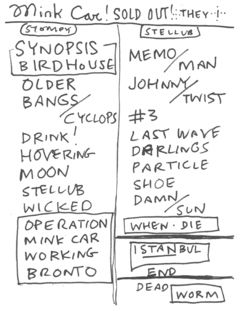 Mink Car! SOLD OUT! THEY!
STOMPY
SYNOPSIS
BIRDHOUSE
OLDER
BANGS/
CYCLOPS
DRINK!
HOVERING
MOON
STELLUB
WICKED
OPERATION
MINK CAR
WORKING
BRONTO
STELLUB
MEMO/
MAN
JOHNNY/
TWIST
#3
LAST WAVE
DARLINGS
PARTICLE
SHOE
DAMN/
SUN
WHEN·DIE
ISTANBUL
END
DEAD WORM